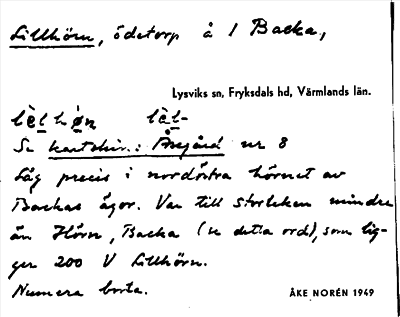 Lillhörn, ödetorp å 1 Backa,
Lysviks sn, Fryksdals hd, Värmlands län.
lèl hǿn lèl-
Se kartskiss: Åsgård nr 8
Låg precis i nordöstra hörnet av
Backas ägor. Var till storleken mindre
än Hörn, Backa (se detta ord), som lig-
ger 200 V Lillhörn.
Numera borta.
ÅKE NORÉN 1949